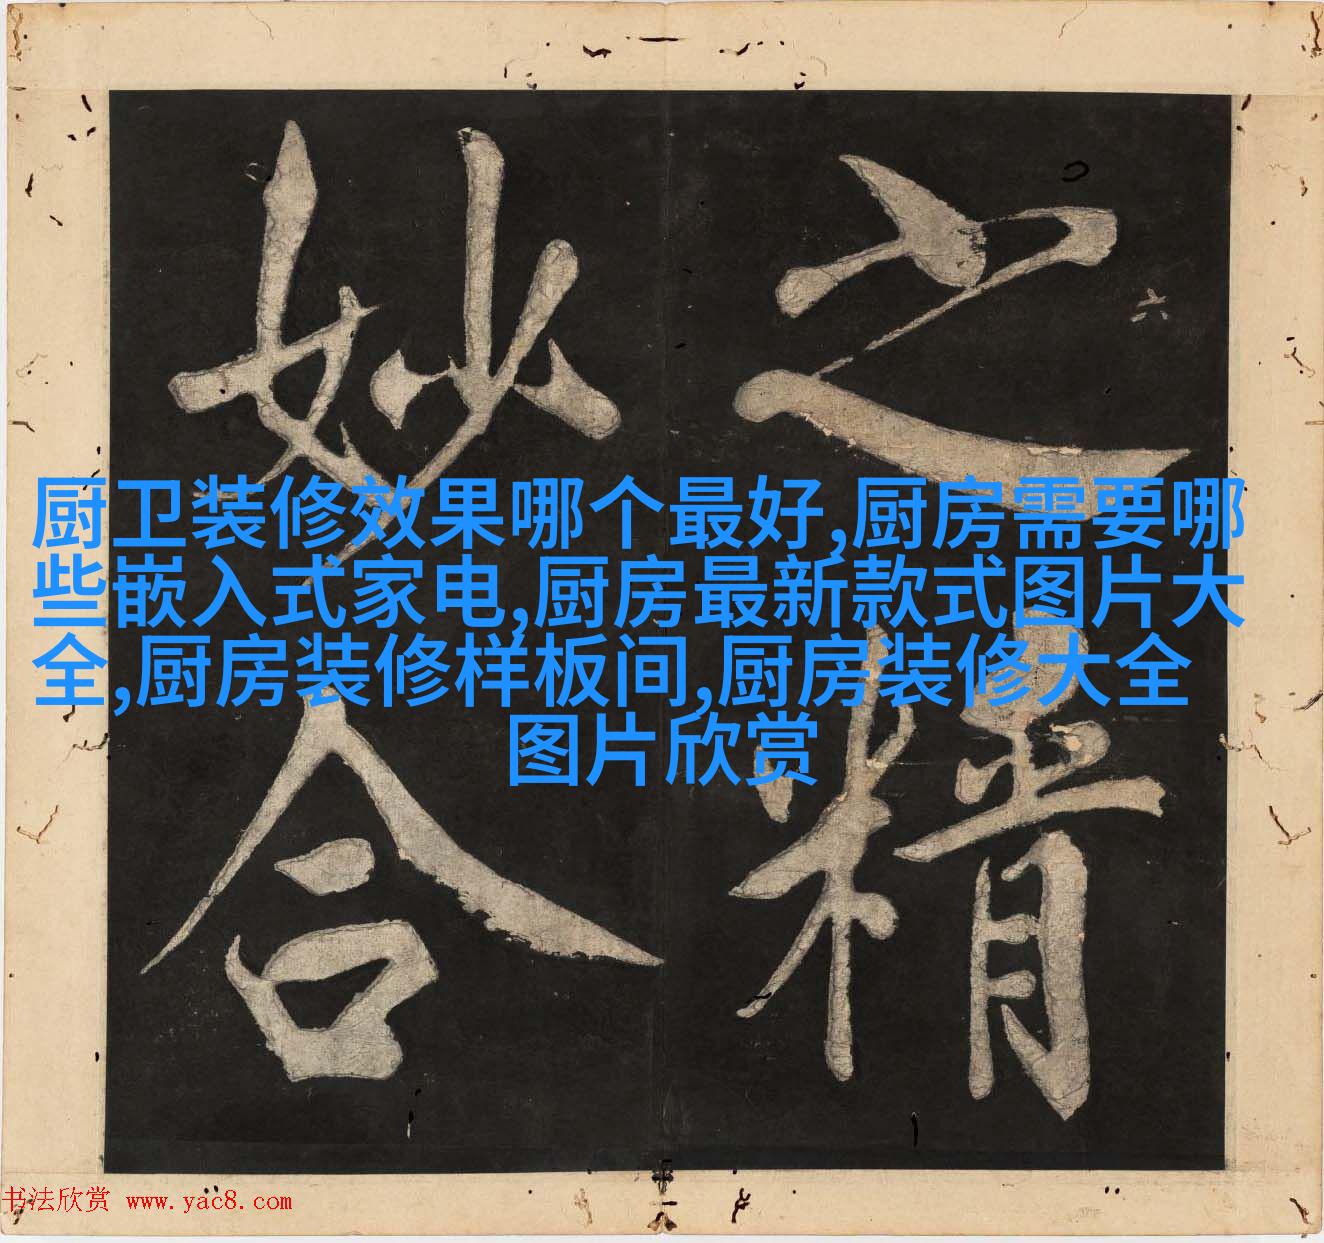 之精
妙合
六
厨卫装修效果哪个最好,厨房需要哪
些嵌入式家电,厨房最新款式图片大
全,厨房装修样板间,厨房装修大全
图片欣赏
书法欣赏 www.yac8.com